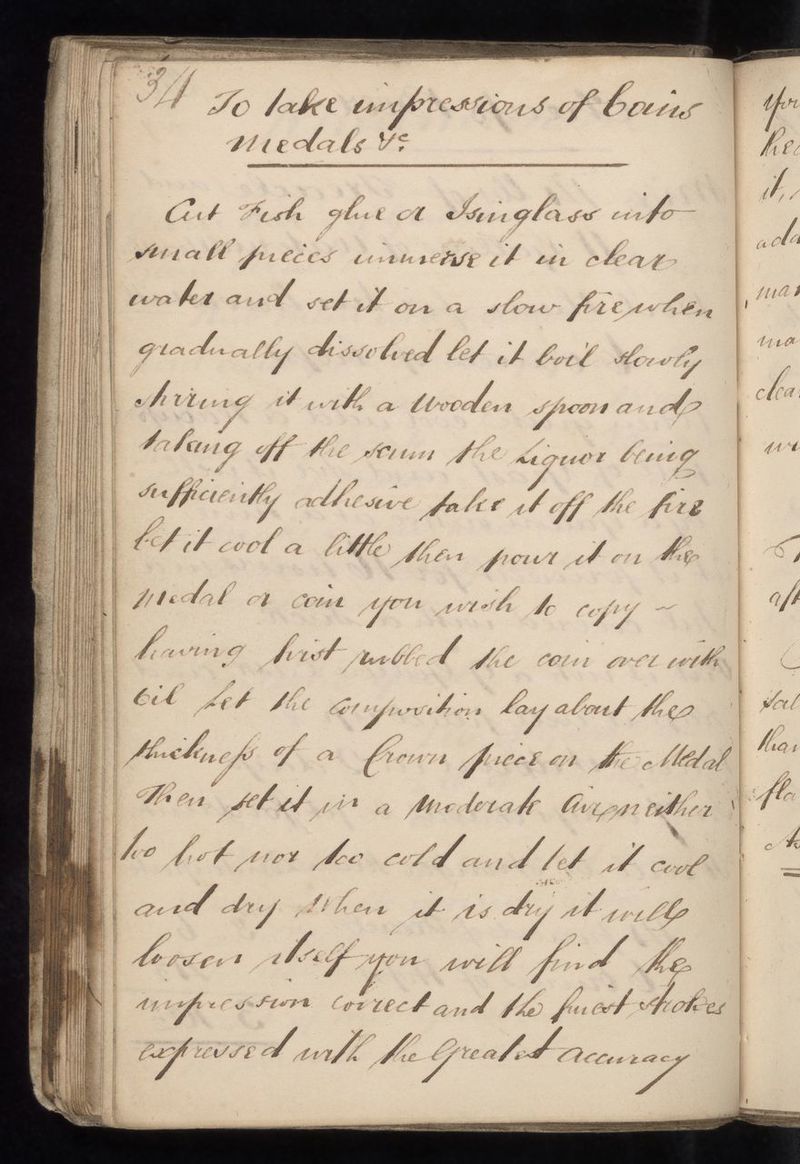 34
To take impressions of Coins
Medals &c.
Cut Fish glue or Isinglass into
small pieces immerse it in clear
water and set it on a slow fire when
gradually dissolved let it boil slowly
stirring it with a Wooden spoon and
taking off the scum the Liquor being
sufficiently adhesive take it off the fire
let it cool a little then pour it on the
medal or coin you wish to copy ~
having first rubbed the coin over with
Oil Let the composition lay about the
thickness of a Crown piece on the Medal
Then set it in a moderate Air neither
too hot nor too cold and let it cool
and dry When it is dry it will
loosen itself you will find the
impression correct and the finest strokes
expressed with the Greatest accuracy
you
the
it,
add
man
ma
clea
wi
aft
sal
than
fla